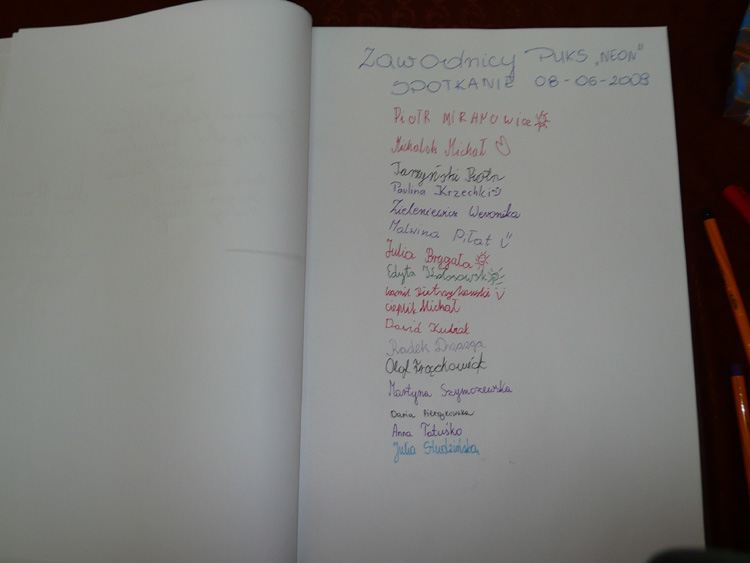 Zawodnicy PUKS „NEON"
SPOTKANIE 08-06-2009
PIOTR MIRANOWICZ
Michałek Michał
Jarzyński Piotr
Paulina Krzechki
Zieleniewicz Weronika
Malwina Piłat
Julia Brągała
Edyta
Kamil
Cieplik Michał
Dawid Kubiak
Radek
Olaf
Martyna Szymczewska
Daria
Anna Tatuśko
Julia Słudzińska